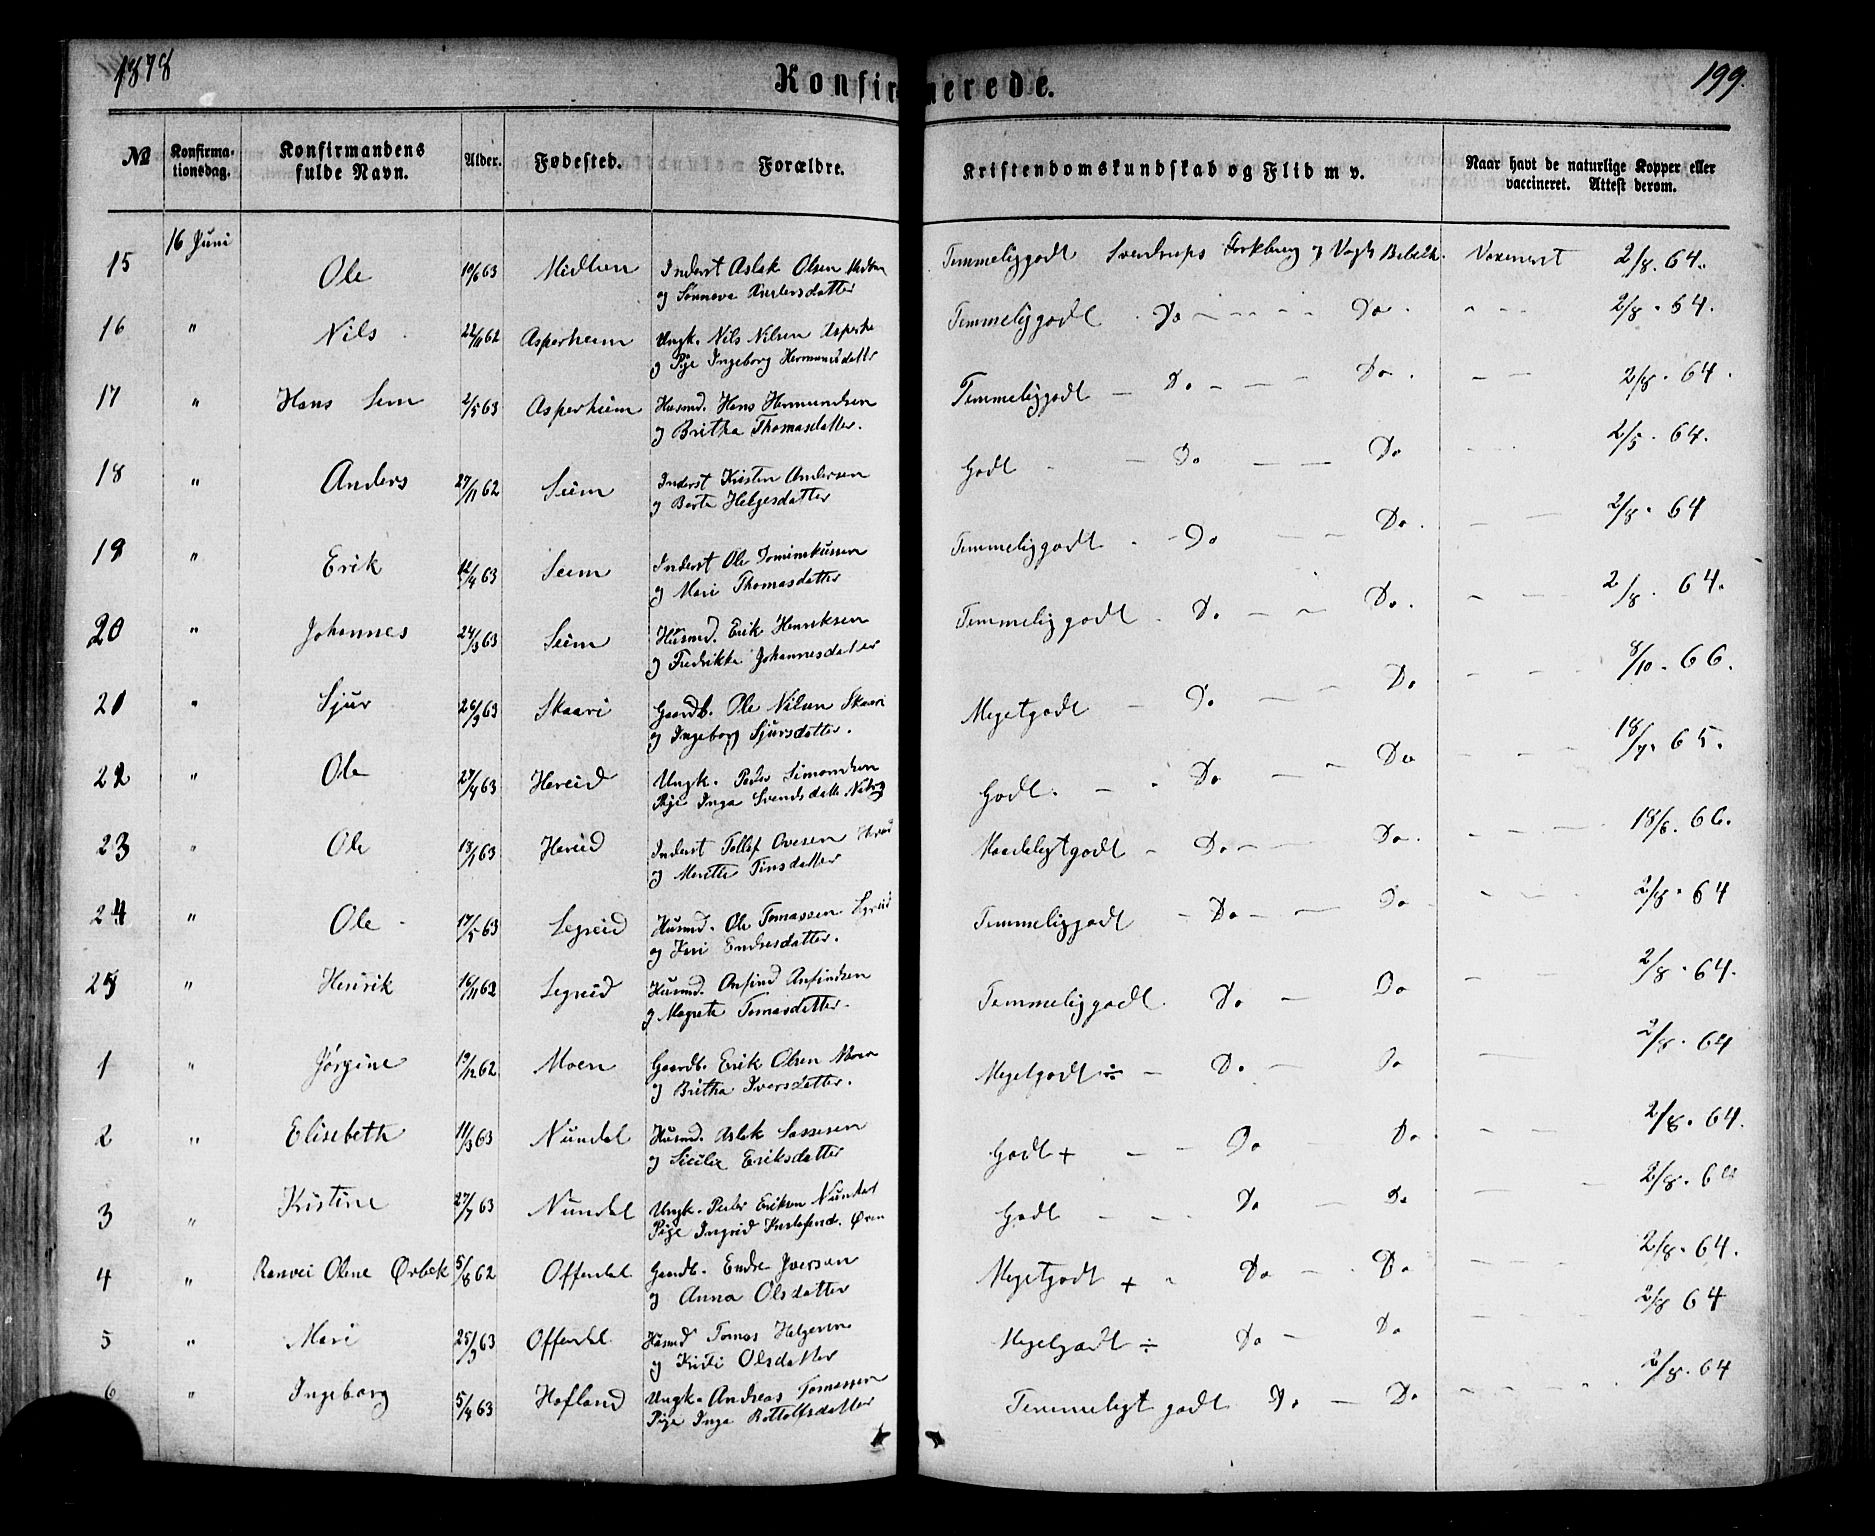 1878
Konfirmerede.
199.
№ Konfirmationsdag. Konfirmandens fulde Navn. Alder. Fødested. Forældre. Kristendomskundskab og Flid m v. Naar havt de naturlige Kopper eller vaccineret. Attest derom.
16 Juni
15 Ole 10/6 63 Midtun Inderst Aslak Olsen Temmeliggodt Sverdrups Forklaring og Vogts Bibelh. Vaxeneret 2/8. 64.
og Sønneva Andersdatter
16 " Nils 22/11 62 Asperheim Ungk. Nils Nilsen Asperhe Temmeliggodt Do Do. 2/8. 64.
og Pige Ingeborg Hermundsdattr
17 " Hans Sem 2/5 63 Asperheim Husmd. Hans Hermundsen Temmeliggodt Do Do. 2/8. 64.
og Britha Thomasdatter.
18 " Anders 27/11 62 Seim Inderst Kristen Andersen Godt Do Do 2/5. 64.
og Berte Helgesdatter
19 " Erik 12/4 63 Seim Inderst Ole Temmeliggodt Do Do. 2/8. 64
og Mari Thomasdatter
20 " Johannes 24/3 63 Seim Husmd. Erik Henriksen Temmeliggodt Do Do. 2/8. 64.
og Fredrikke Johannesdatter
21 " Sjur 26/3 63 Skaari Gaardb. Ole Nilsen Skaari Megetgodt Do Do 8/10. 66.
og Ingeborg Sjursdatter.
22 " Ole 27/4 63 Hereid Ungk. Peder Simondsen Godt. Do Do 18/7. 65.
Pige Inga Svendsdatte
23 " Ole 13/1 63 Hereid Inderst Tollef Ovesen Maadeligtgodt Do Do. 18/6. 66.
og Merette Finsdatter
24 " Ole 17/5 63 Legreid Husmd. Ole Tomassen Legreid Temmeliggodt Do Do 2/8. 64
og Endresdatter.
25 " Henrik 16/11 62 Legreid Husmd. Anfind Anfindsen Temmeliggodt. Do Do 2/8. 64.
og Magrete Tomasdatter.
1 " Jørgine 19/12 62 Moen Gaardb. Erik Olsen Moen Megetgodt ÷ Do Do 2/8. 64
og Britha Iversdatter.
2 " Elisebeth 11/3 63 Nundal Husmd. Aslak Lassesen Godt + Do Do. 2/8. 64.
og Sicilie Eriksdatter
3 " Kristine 27/7 63 Nundal Ungk. Peder Eriksen Nundal Godt Do Do 2/8.
Pige Ingrid
4 " Ranvei Oline Ørbek 5/8 62 Offerdal Gaardb. Endre Iversen Megetgodt + Do Do 2/8. 64.
og Anna Olsdatter
5 " Mari 25/3 63 Offerdal Husmd Tomas Helgesen Megetgodt ÷ Do Do 2/8 64
og Kristi Olsdatter
6 " Ingeborg 5/4 63 Hofland Ungk. Andreas Tomassen Temmeligt godt Do Do 2/8. 64
Pige Inga Bottolfsdatter